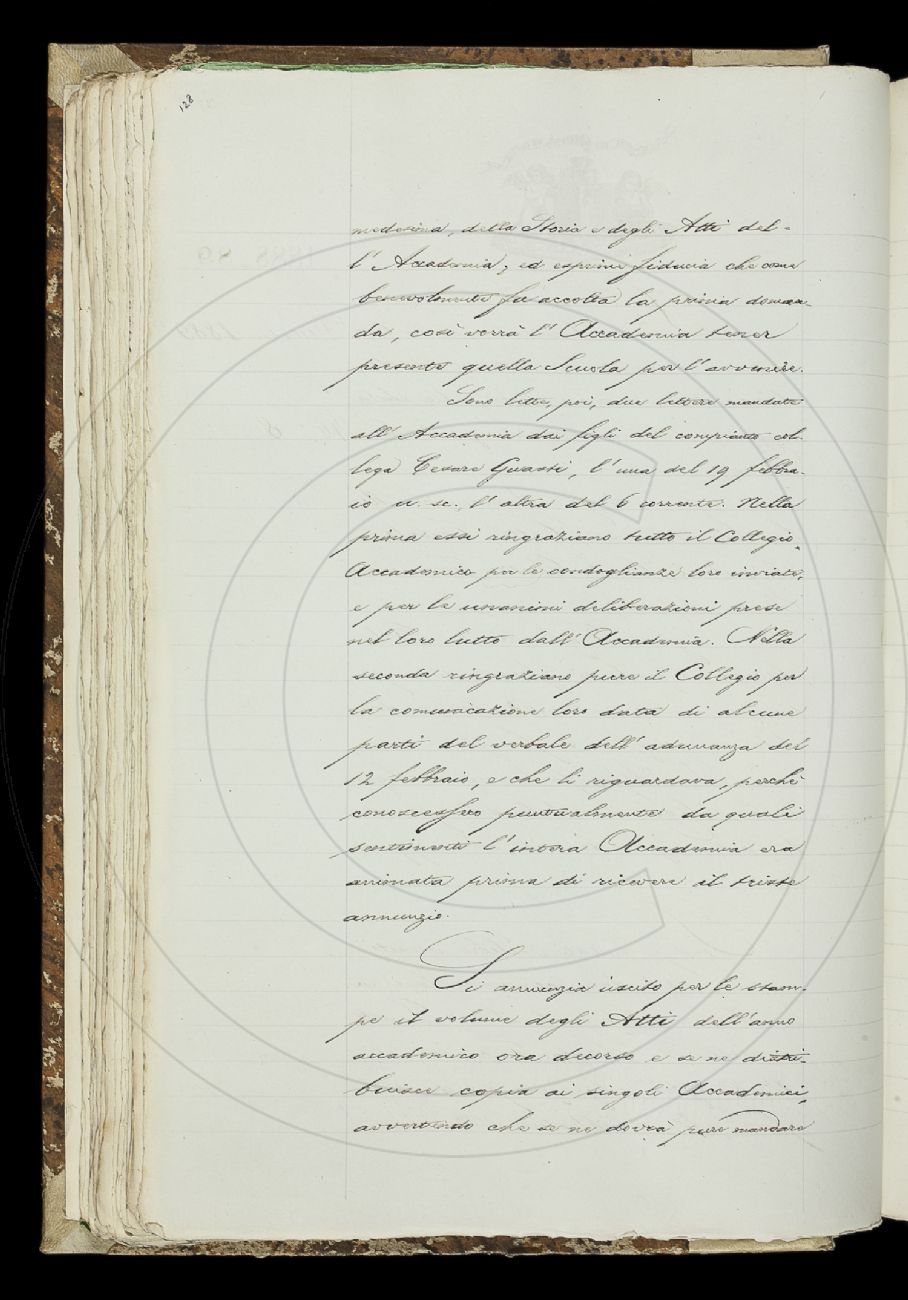 128
medesima, della Storia e degli Atti del-
l' Accademia; ed esprime fiducia che come
benevolmente fu accolta la prima doman-
da, così vorrà l' Accademia tener
presente quella Scuola per l' avvenire.
Sono lette, poi, due lettere mandate
all' Accademia dai figli del compianto col-
lega Cesare Guasti, l' una del 19 febbra-
io u. sc. l' altra del 6 corrente. Nella
prima essi ringraziano tutto il Collegio
Accademico per le condoglianze loro inviate,
e per le unanimi deliberazioni prese
nel loro lutto dall' Accademia. Nella
seconda ringraziano pure il Collegio per
la comunicazione loro data di alcune
parti del verbale dell' adunanza del
12 febbraio, e che li riguardava, perchè
conoscessero puntualmente da quali
sentimenti l' intera Accademia era
animata prima di ricevere il triste
annunzio.
Si annunzia uscito per le stam-
pe il volume degli Atti dell' anno
accademico ora decorso e se ne distri-
buisce copia ai singoli Accademici,
avvertendo che se ne dovrà pure mandare